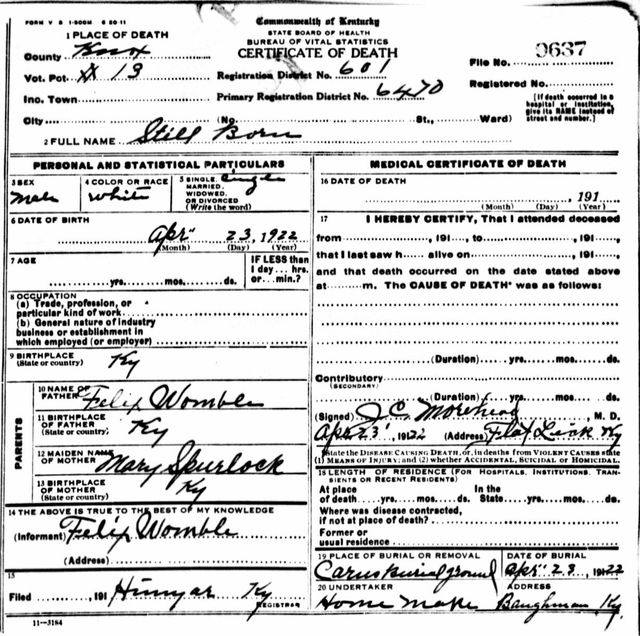 FORM V S 1-500M 6 20-11
Commonwealth of Kentucky
STATE BOARD OF HEALTH
BUREAU OF VITAL STATISTICS
CERTIFICATE OF DEATH
1 PLACE OF DEATH
County Knox
Vot. Pct. # 13
Inc. Town
City (No. St., Ward)
Registration District No. 601
Primary Registration District No. 6470
File No. 9637
Registered No.
[If death occurred in a hospital or institution, give its NAME instead of street and number.]
2 FULL NAME Still Born
PERSONAL AND STATISTICAL PARTICULARS
3 SEX Male
4 COLOR OR RACE white
5 SINGLE, MARRIED, WIDOWED, OR DIVORCED (Write the word) single
6 DATE OF BIRTH
Apr 23, 1922
(Month) (Day) (Year)
7 AGE
yrs. mos. ds.
IF LESS than 1 day... hrs. or... min.?
8 OCCUPATION
(a) Trade, profession, or particular kind of work
(b) General nature of industry business or establishment in which employed (or employer)
9 BIRTHPLACE (State or country) Ky
PARENTS
10 NAME OF FATHER Felix Womble
11 BIRTHPLACE OF FATHER (State or country) Ky
12 MAIDEN NAME OF MOTHER Mary Spurlock
13 BIRTHPLACE OF MOTHER (State or country) Ky
14 THE ABOVE IS TRUE TO THE BEST OF MY KNOWLEDGE
(Informant) Felix Womble
(Address)
15
Filed , 191 Ky
REGISTRAR
11-3184
MEDICAL CERTIFICATE OF DEATH
16 DATE OF DEATH
, 191
(Month) (Day) (Year)
17 I HEREBY CERTIFY, That I attended deceased
from , 191 , to , 191 ,
that I last saw h alive on , 191 ,
and that death occurred on the date stated above
at m. The CAUSE OF DEATH* was as follows:
(Duration) yrs. mos. ds.
Contributory
(SECONDARY)
(Duration) yrs. mos. ds.
(Signed) J. C. Morehead, M. D.
Apr 23, 1922 (Address) Flat Lick Ky
*State the DISEASE CAUSING DEATH, or, in deaths from VIOLENT CAUSES state
(1) MEANS OF INJURY; and (2) whether ACCIDENTAL, SUICIDAL or HOMICIDAL.
18 LENGTH OF RESIDENCE (FOR HOSPITALS, INSTITUTIONS, TRANSIENTS OR RECENT RESIDENTS)
At place of death yrs. mos. ds. In the State yrs. mos. ds.
Where was disease contracted, if not at place of death?
Former or usual residence
19 PLACE OF BURIAL OR REMOVAL
burial ground
DATE OF BURIAL
Apr 23, 1922
20 UNDERTAKER
Home Make
ADDRESS
Baughman, Ky